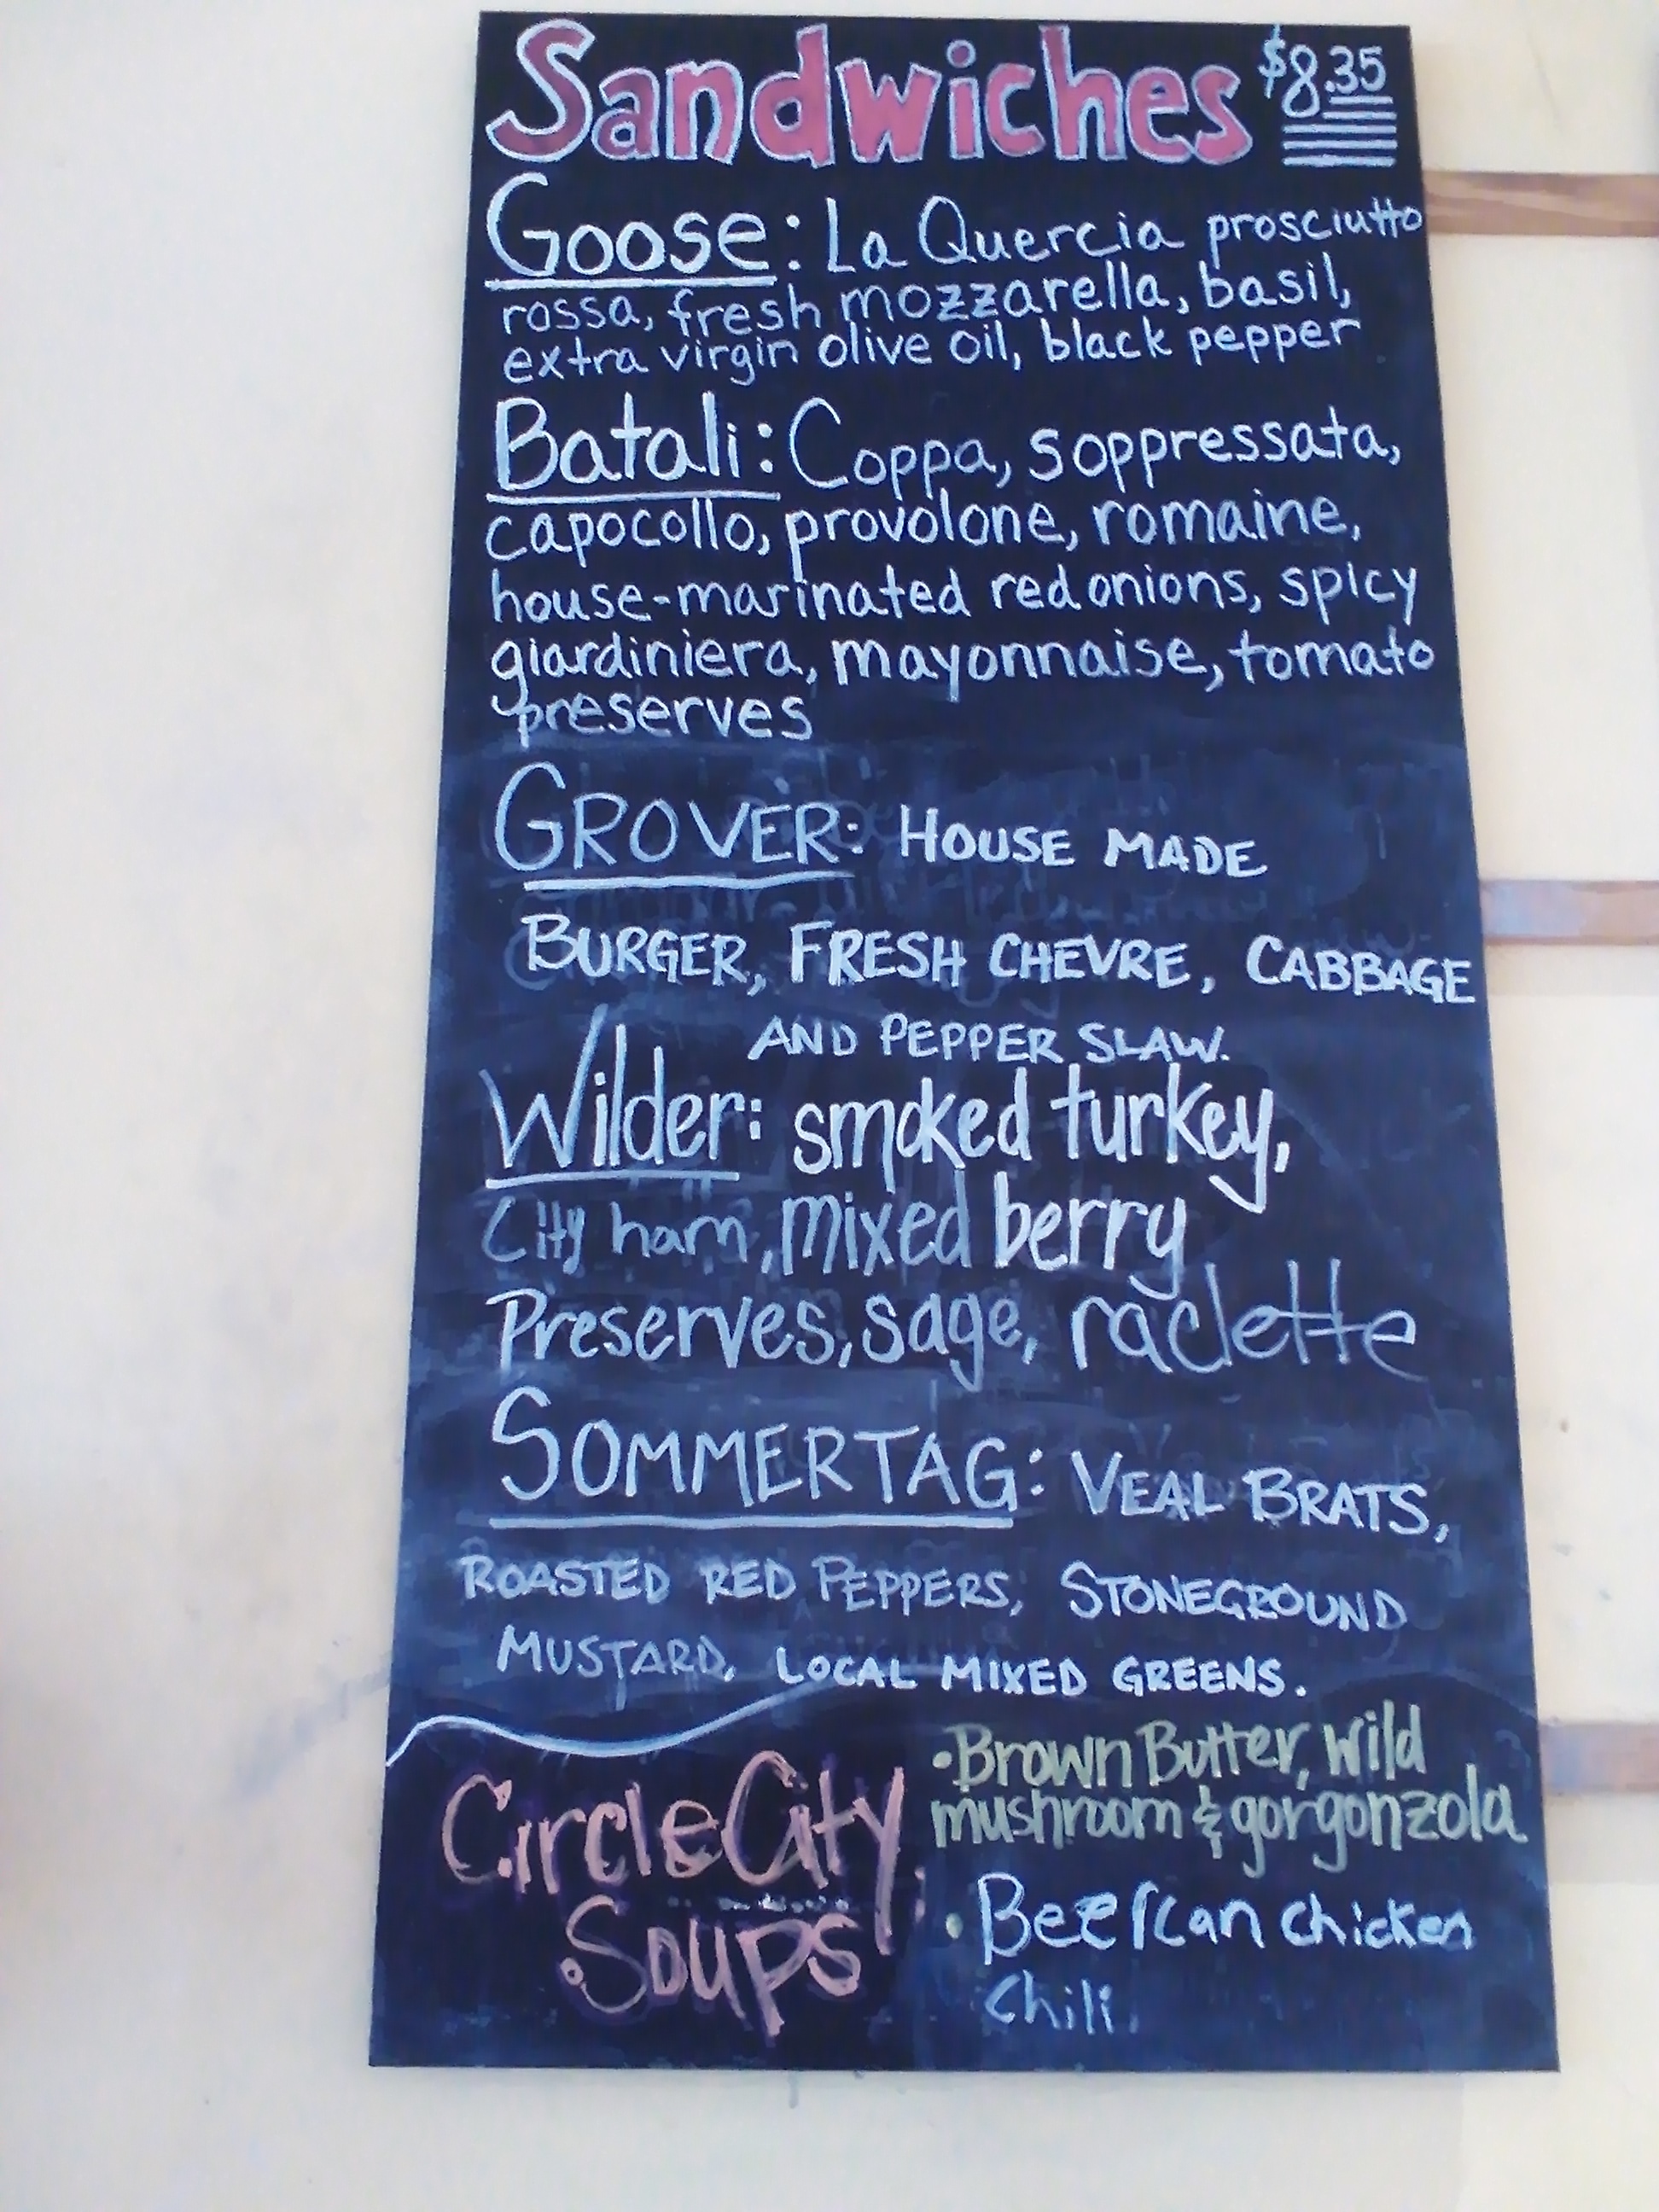 Sandwiches $8.35
Goose: La Quercia prosciutto
rossa, fresh mozzarella, basil,
extra virgin olive oil, black pepper
Batali: Coppa, soppressata,
capocollo, provolone, romaine,
house-marinated red onions, spicy
giardiniera, mayonnaise, tomato
preserves
GROVER: HOUSE MADE
BURGER, FRESH CHEVRE, CABBAGE
AND PEPPER SLAW.
Wilder: smoked turkey,
City ham, mixed berry
Preserves, sage, raclette
SOMMERTAG: VEAL BRATS,
ROASTED RED PEPPERS, STONEGROUND
MUSTARD, LOCAL MIXED GREENS.
Circle City
Soups
•Brown Butter, wild
mushroom & gorgonzola
•Beer Can chicken
Chili